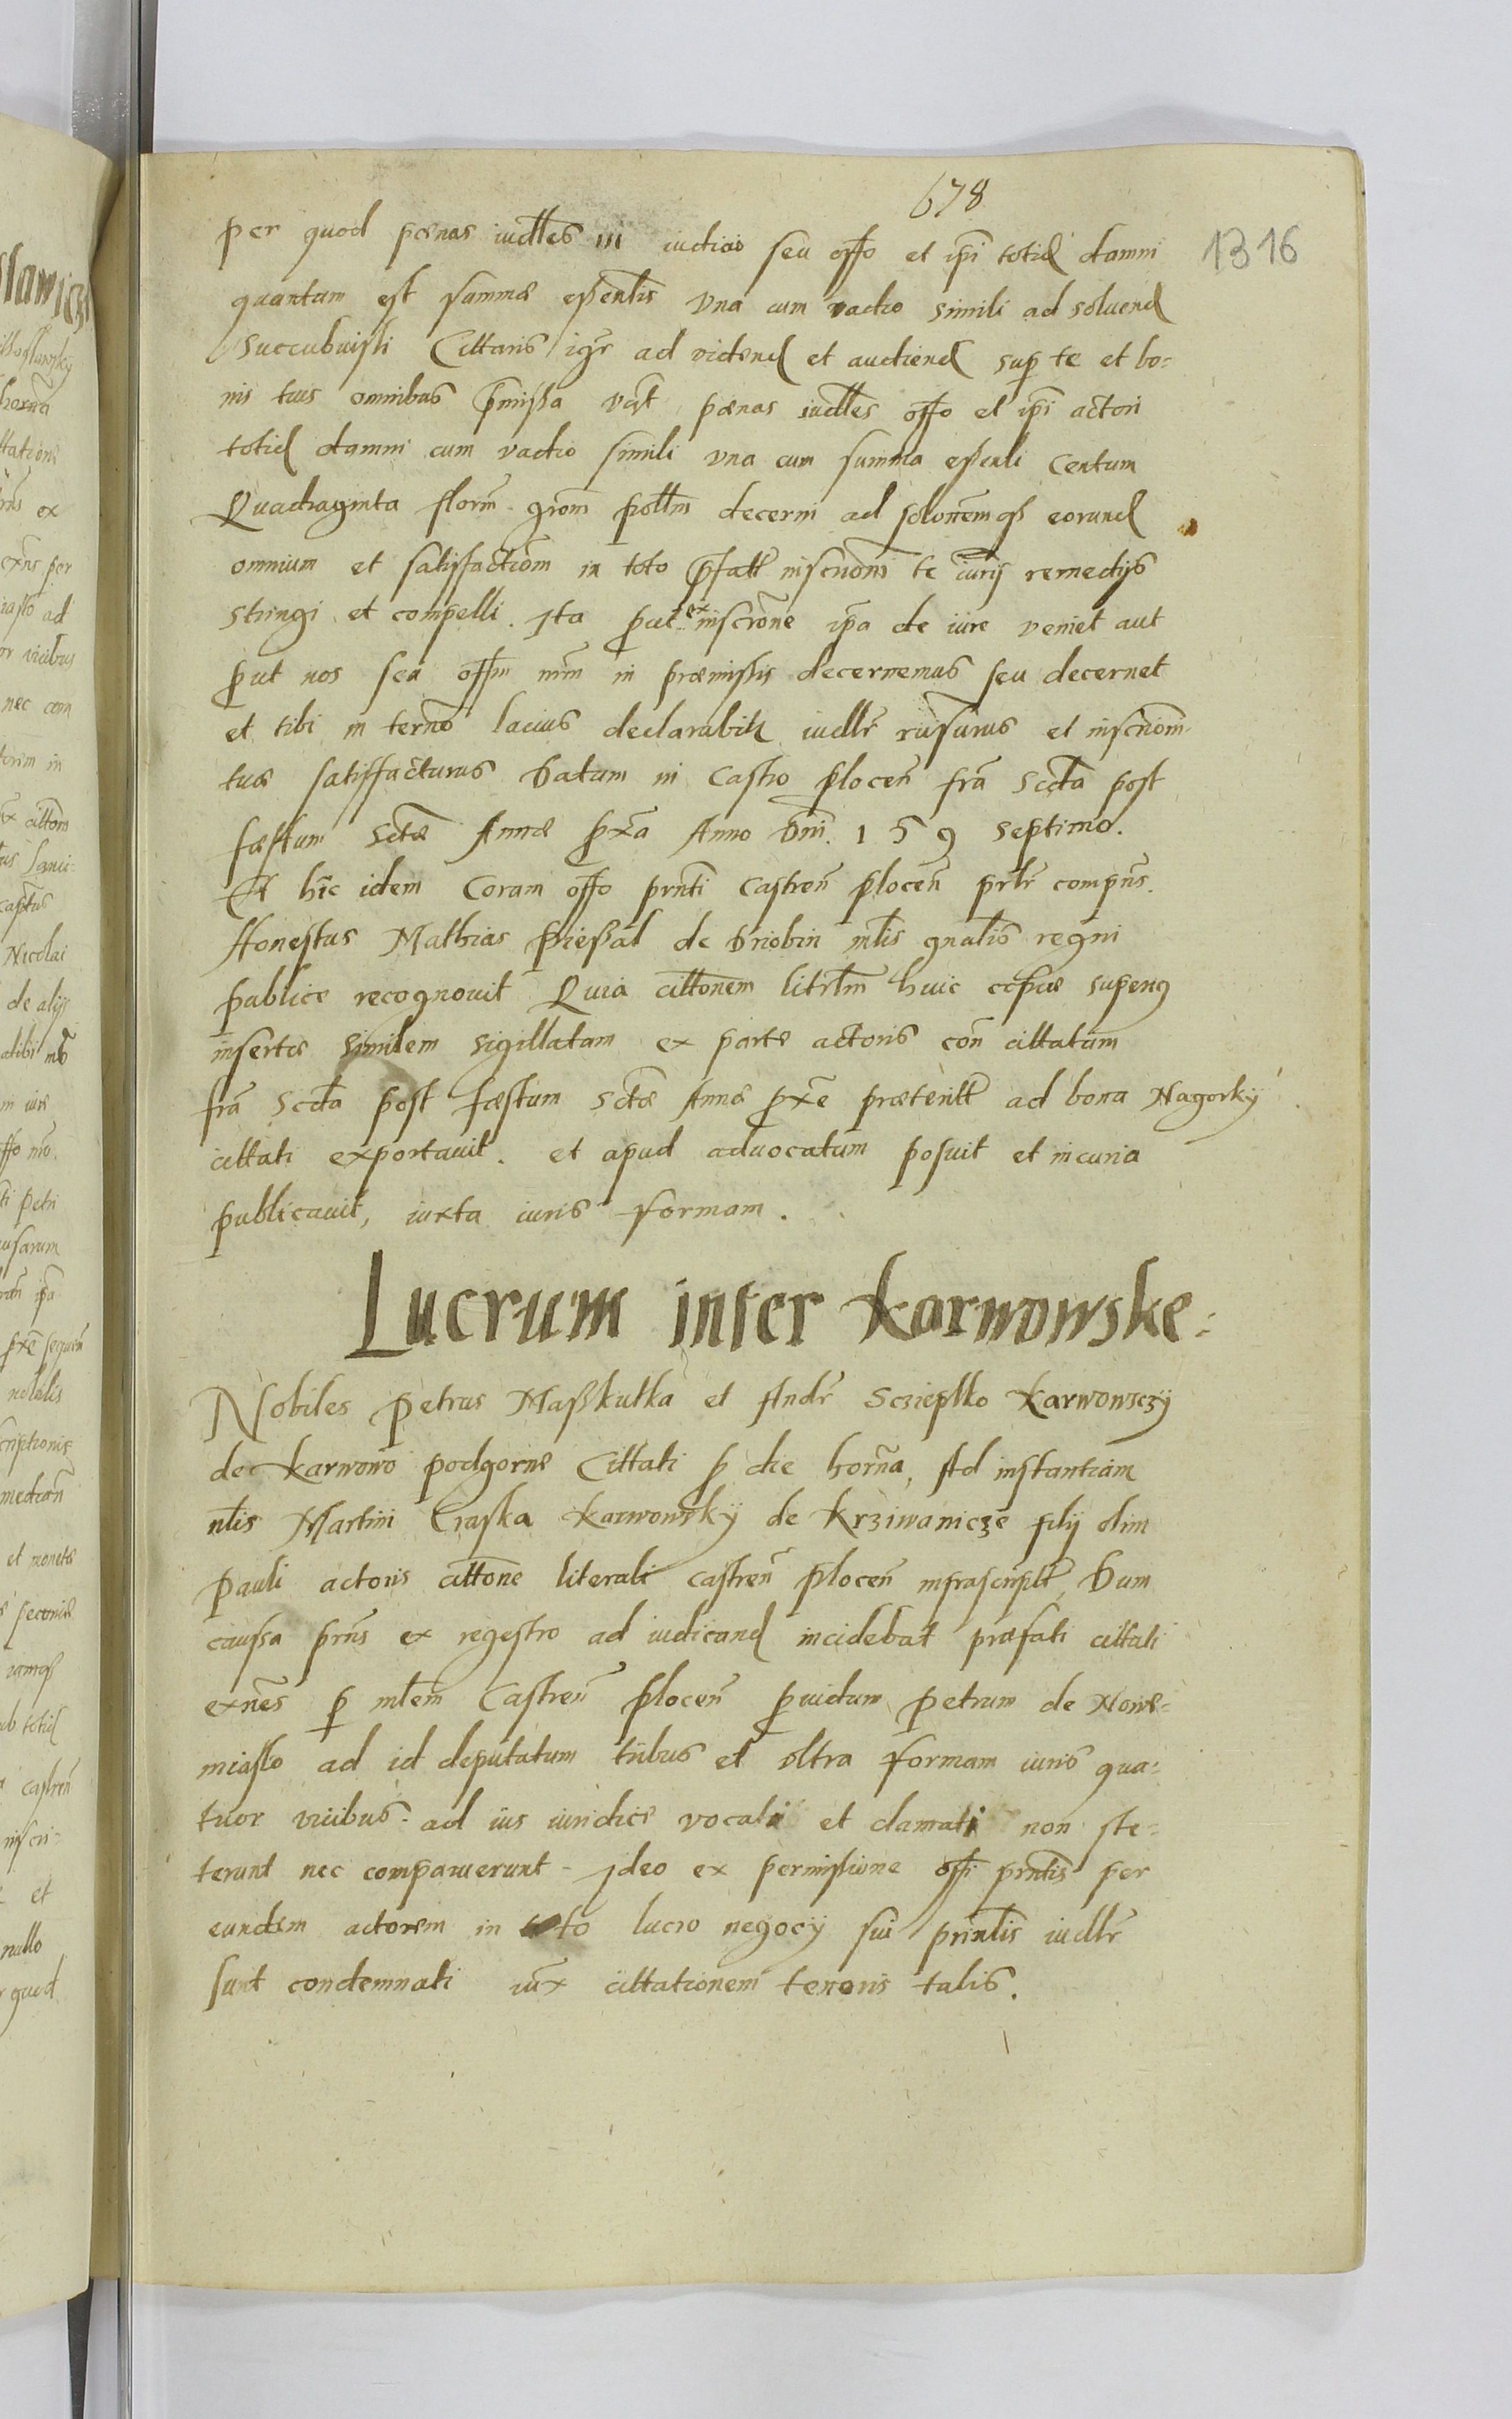 678
1316
per quod pœnas iudlles in iudicio seu offo et ipi totid damni
quantum est summæ eßenlis vna cum vadio simili ad soluend
succubuisti Cittaris igr ad vidend et audiend sup te et bo-
nis tuis omnibus pmißa vdt pœnas iudlles offo et ipi actori
totid damni cum vadio simili vna cum summa eßenli Centum
Quadraginta florm. grom pollm decerni ad solonemq eorund
omnium et satisfactiom in toto pfatt inscnoni te iuris remedijs
stringi et compelli. Ita put ex inscrone ipa de iure veniet aut
put nos seu offm nrm in præmissis decernemus seu decernet
et tibi in termo lacius declarabitr iudllr risurus et inscriom
tuæ satisfacturus Datum in Castro plocen fra scda post
fæstum Sctæ Annæ pxa Anno Dni. 159 septimo.
Et hic idem Coram offo prnti Castren plocen prlr compns.
Honestus Mathias prießal de Driobin mlis gnalis regni
publice recognouit Quia cittonem litrlm huic copiæ superiq
insertæ similem sigillatam ex parte actoris con cittatum
fra scda post fæstum Sctæ Annæ pxe præteritt ad bona Nagorky
cittati exportauit. et apud aduocatum posuit et in curia
publicauit, iuxta iuris formam.
Lucrum inter Karwowske:
Nobiles Petrus Maßkulka et Andr Sczieplko Karwowsczy
de Karwowo podgorne Cittati p die horna, Ad instantiam
nlis Martini Craska Karwowsky de Krziwanicze filij olim
Pauli actoris cittone literali castren plocen infrascriptt, Dum
caussa prns ex regestro ad iudicand incidebat præfati cittati
exnes p mlem Castren plocen puidum Petrum de Nowe-
miasto ad id deputatum tribus et vltra formam iuris qua-
tuor vicibus. ad ius iuridice vocati et clamati non ste-
terunt nec comparuerunt - Ideo ex permissione offi prntis per
eundem actorem in toto lucro negocij sui prinlis iudllr
sunt condemnati iux cittationem tenoris talis.